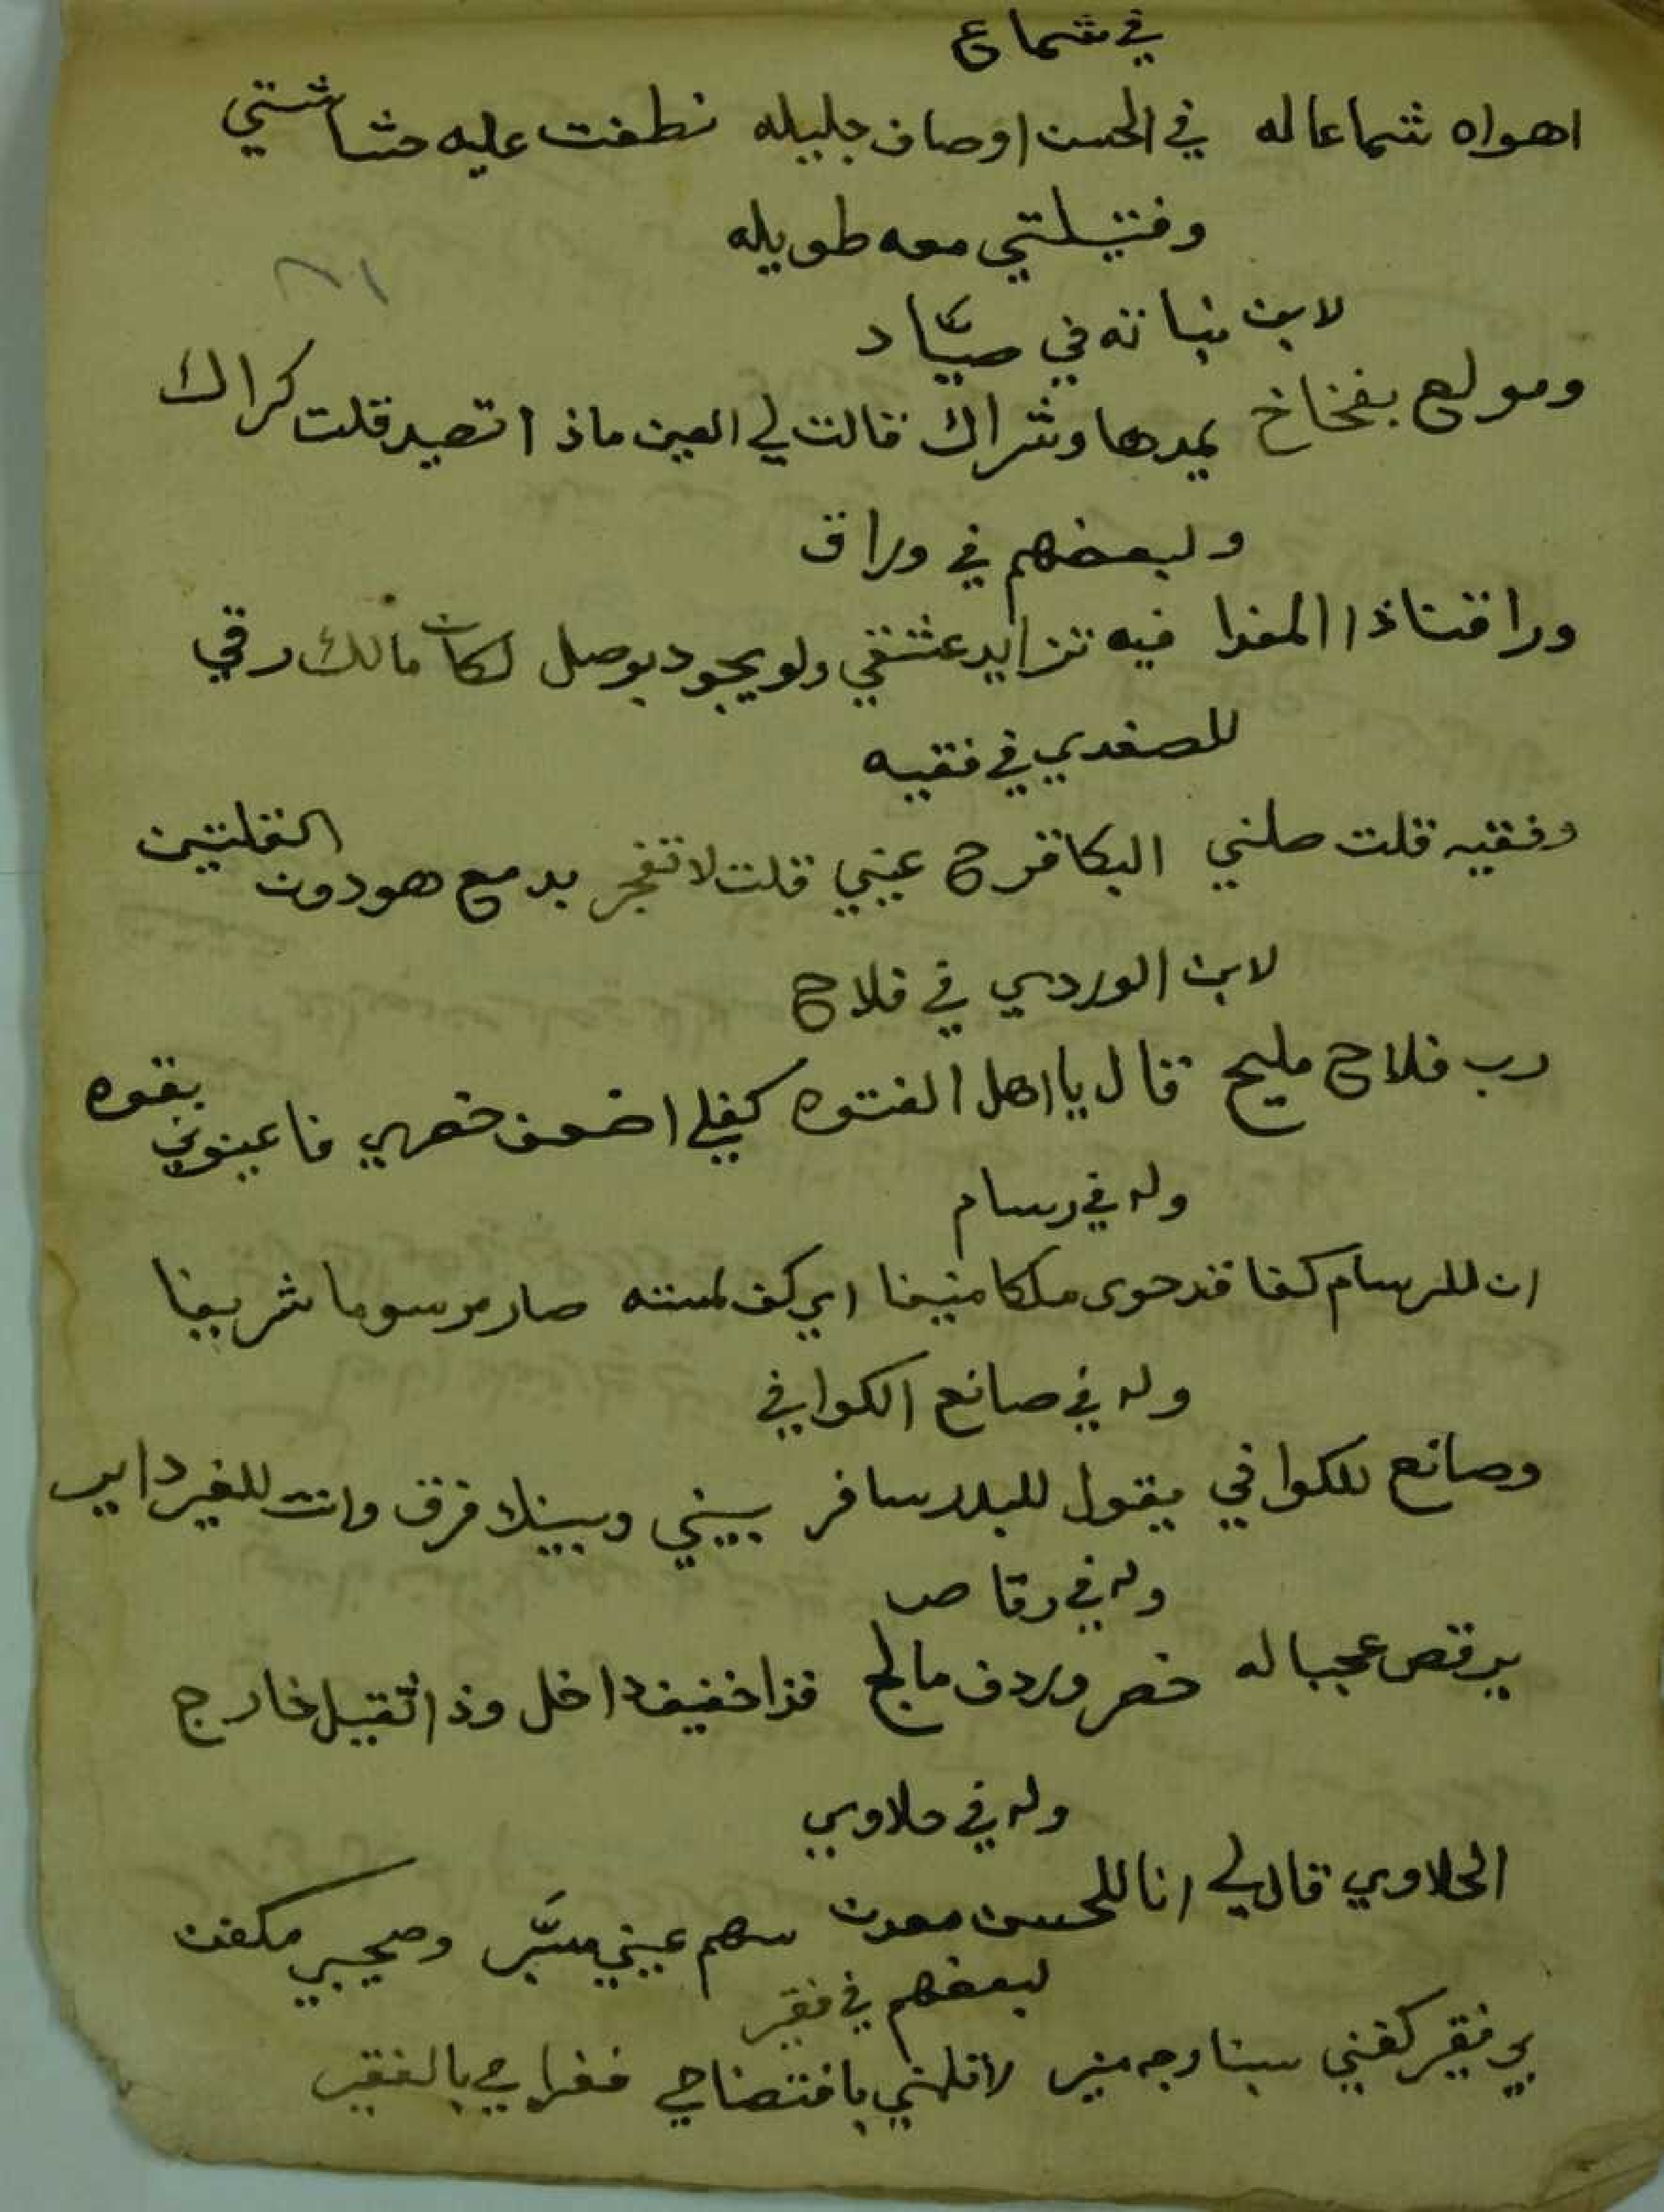 في شماع
اهواه شماعا له في الحسن اوصاف جليله نطفت عليه حشاشتي
وفتيلتي معه طويله
لابن نباته في صياد
ومولع بفخاخ يمدها وشراك قالت لي العين ماذا تصيد قلت كراك
ولبعضهم في وراق
وراقنا ذا المفدا فيه تزايد عشقي ولو يجود بوصل لكان مالك رقي
للصفدي في فقيه
وفقيه قلت صلني البكا قرح عيني قلت لا تفجر بدمع هو دون القلتين
لابن الوردي في فلاح
رب فلاح مليح قال يا اهل الفتوه كفلي اضعف خصري فاعينوني بقوه
وله في رسام
ان للرسام كفا قد حوى ملكا منيفا اي كف لمسته صار مرسوما شريفا
وله في صانع الكوافي
وصانع للكوافي يقول للبدر سافر بيني وبينك فرق وانت للغير داير
وله في رقاص
يرقص عجبا له خصر وردف مالج فذا خفيف داخل وذا ثقيل خارج
وله في حلاوي
الحلاوي قال لي انا للحسن معدن سهم عيني مسير وصحيبي مكفن
لبعضهم في فقير
بي فقير كفني سنا وجه منير لا تلمني بافتضاحي فغرامي بالفقير